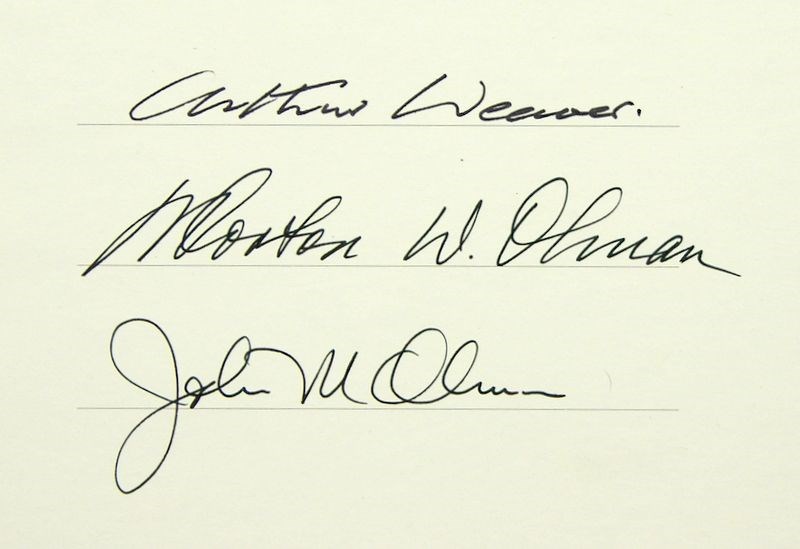 Arthur Weaver.
Morton W. Olman
John M Olman